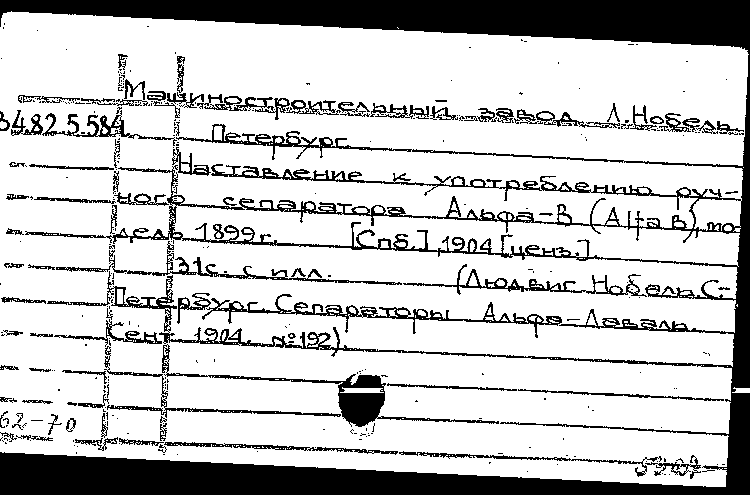 Машиностроительный завод Л.Нобель
3482 5.584. Петербург
Наставление к употреблению руч-
ного сепаратора Альфа-В (Alfa B), мо-
дель 1899 г. [Спб.], 1904 [ценз.].
31с. с илл. (Людвиг Нобель. С.-
Петербург. Сепараторы Альфа-Лаваль.
Сент. 1904. №192).
62-70